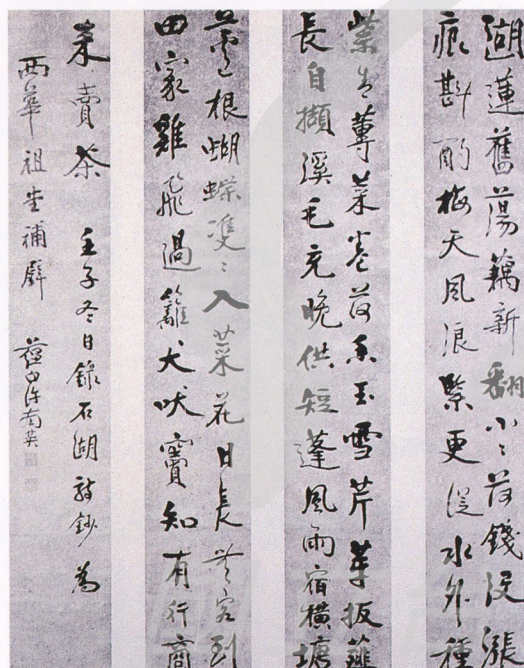 湖蓮舊蕩藕新翻小〻荷錢沒漲
痕斟酌梅天風浪緊更從水外種
紫青蓴菜卷荷香玉雪芹芽拔薤
長自擷溪毛充晚供短蓬風雨宿橫塘
蘆根蝴蝶雙〻入菜花日長無客到
田家雞飛過籬犬吠竇知有行商
來賣茶 壬子冬日錄石湖詩鈔為
西華祖堂補壁 蘊白許南英